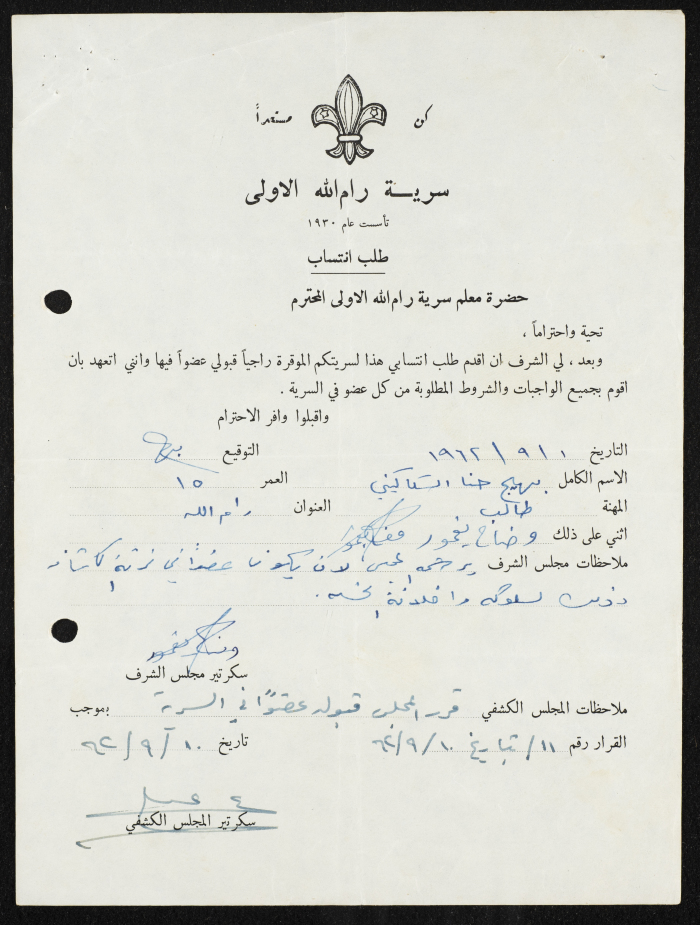 كن مستعداً
سرية رام الله الاولى
تأسست عام ١٩٣٠
طلب انتساب
حضرة معلم سرية رام الله الاولى المحترم
تحية واحتراماً ،
وبعد ، لي الشرف ان اقدم طلب انتسابي هذا لسريتكم الموقرة راجياً قبولي عضواً فيها وانني اتعهد بان
اقوم بجميع الواجبات والشروط المطلوبة من كل عضو في السرية .
واقبلوا وافر الاحترام
التاريخ ١ / ٩ / ١٩٦٢ التوقيع بهيج
الاسم الكامل بهيج حنا السكاكيني العمر ١٥
المهنة طالب العنوان رام الله
اثني على ذلك وضاح يغمور
ملاحظات مجلس الشرف المجلس لأن يكون عضواً في فرقة الكشافة
وذلك لسلوكه واخلاقه الحسنه .
سكرتير مجلس الشرف
ملاحظات المجلس الكشفي قرر المجلس قبوله عضواً في السرية بموجب
القرار رقم ١١ / بتاريخ ١٠ / ٩ / ٦٢ تاريخ ١٠ / ٩ / ٦٢
سكرتير المجلس الكشفي